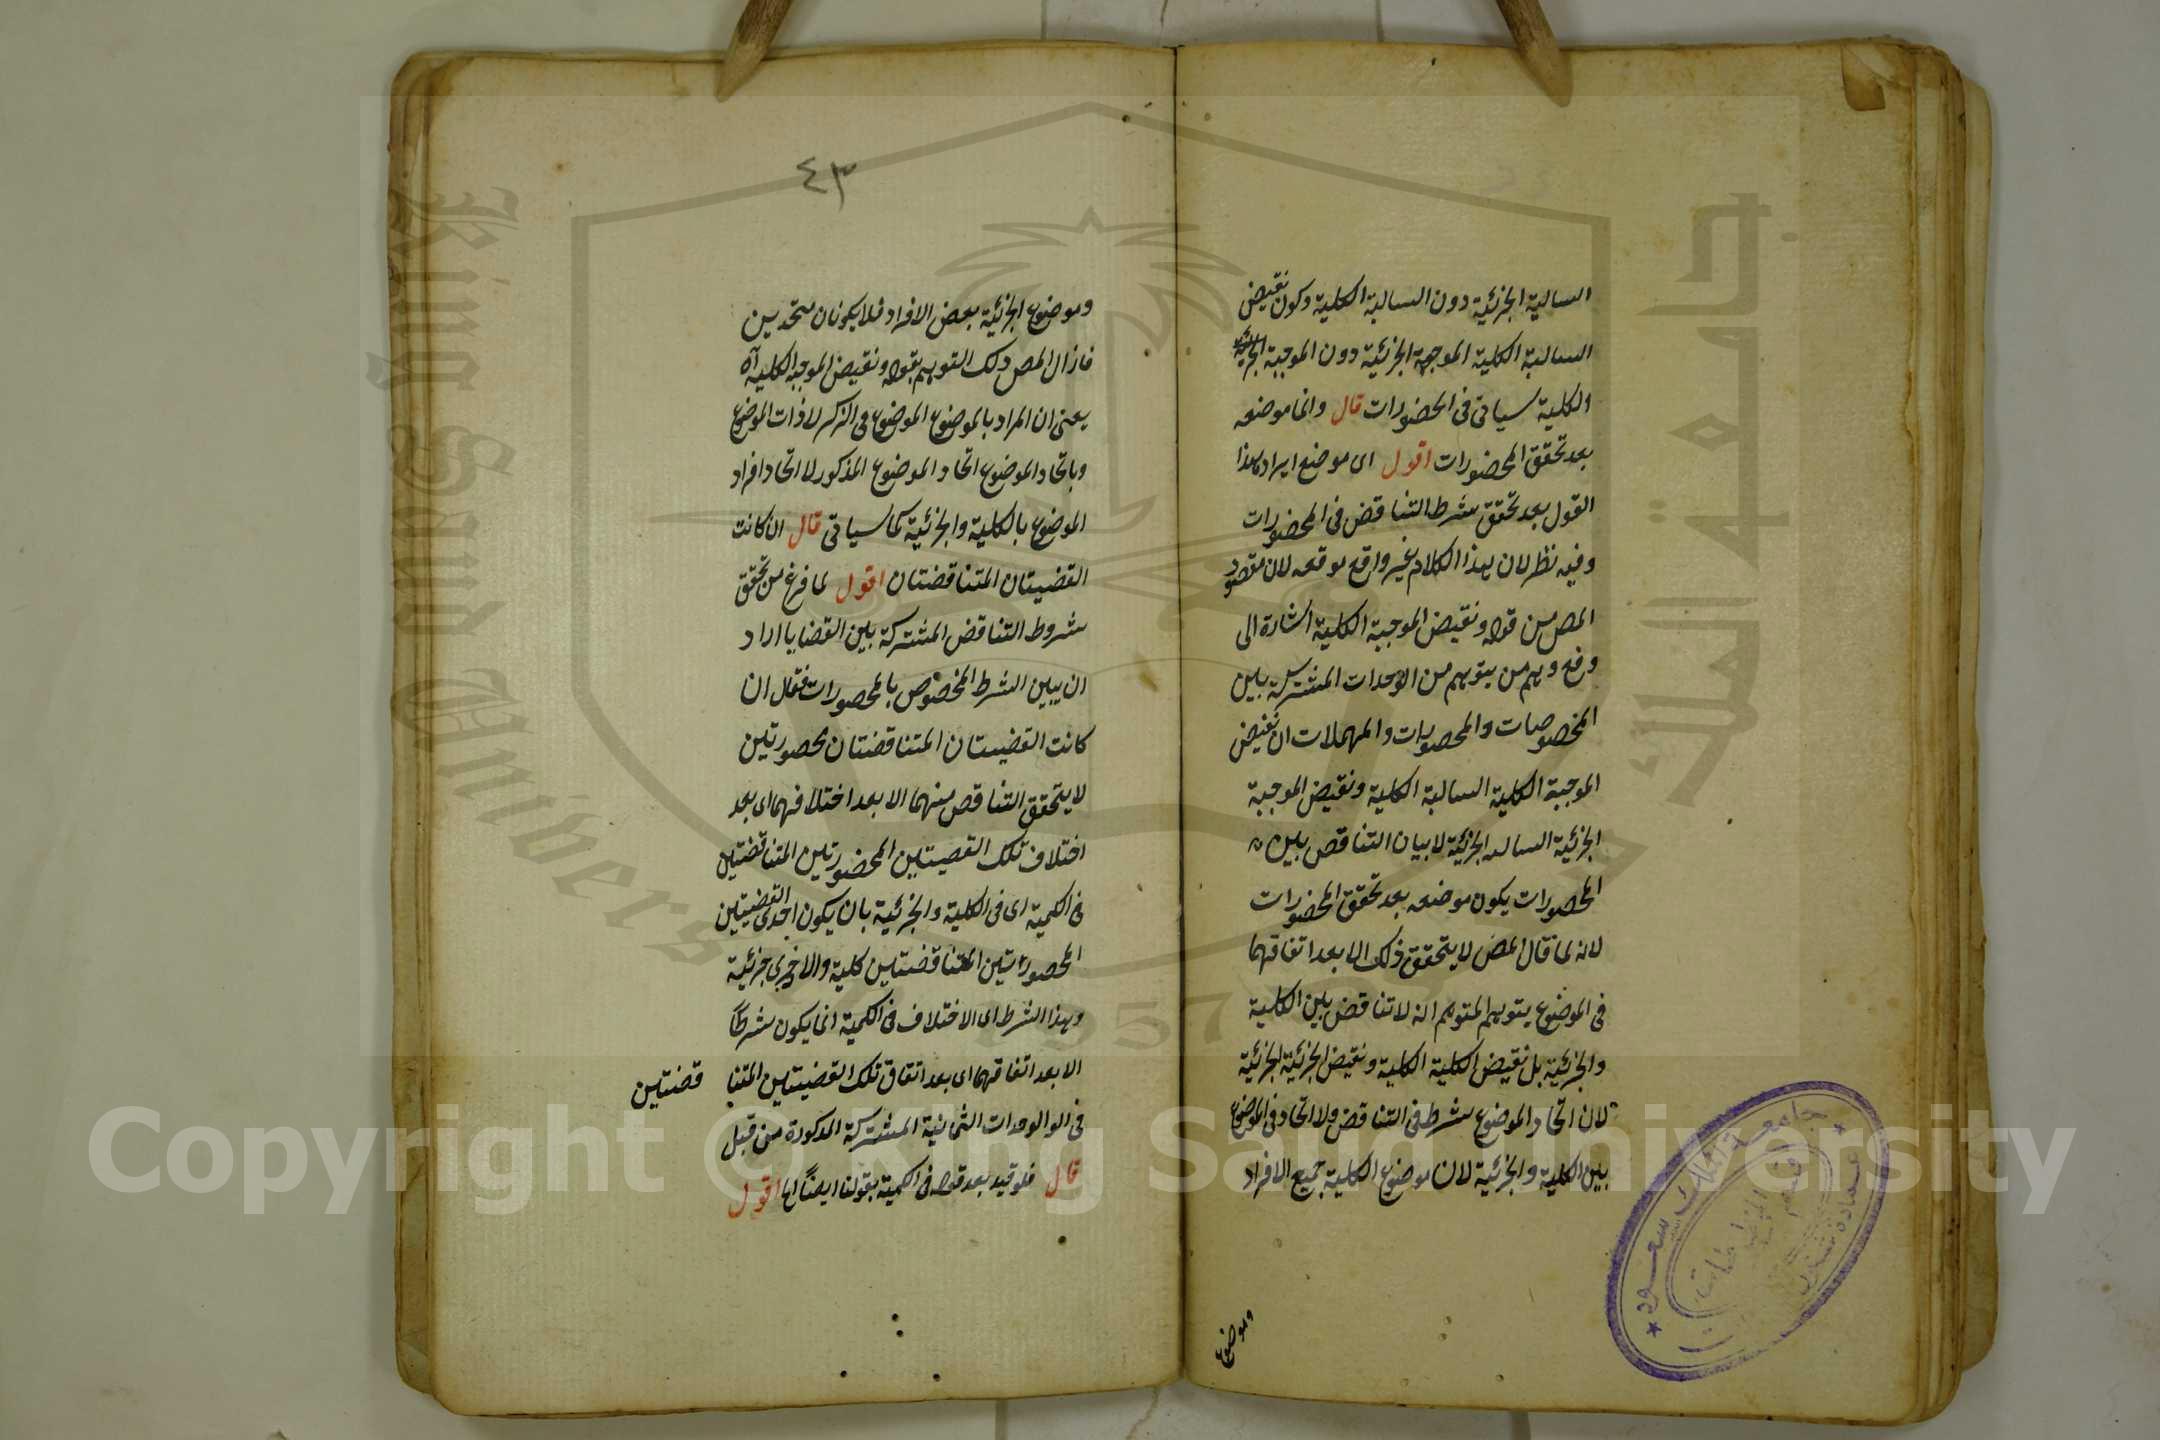 السالبة الجزئية دون السالبة الكلية وكون نقيض
السالبة الكلية الموجبة الجزئية دون الموجبة
الكلية سيأتى فى المحضورات قال وانما موضعه
بعد تحقق المحضورات اقول اى موضع ايراد هذا
القول بعد تحقق شرط التناقض فى المحضورات
وفيه نظر لان هذا الكلام غير واقع موقعه لان مقصود
المص من قوله ونقيض الموجبة الكلية اشارة الى
دفع وهم من يتوهم من الوحدات المشتركة بين
المخصوصات والمحصورات والمهملات ان نقيض
الموجبة الكلية السالبة الكلية ونقيض الموجبة
الجزئية السالبه الجزئية لا بيان التناقص بين
المحصورات يكون موضعه بعد تحقق المحضورات
لانه لما قال المص لا يتحقق ذلك الا بعد اتفاقهما
فى الموضوع يتوهم المتوهم انه لا تناقض بين الكلية
والجزئية بل نقيض الكلية الكلية ونقيض الجزئية الجزئية
لان اتحاد الموضوع شرط فى التناقض ولا اتحاد فى الموضوع
بين الكلية والجزئية لان موضوع الكلية جميع الافراد
وموضوع
٤٣
وموضوع الجزئية بعض الافراد فلا يكونان متحدين
فازال المص ذلك التوهم بقوله ونقيض الموجبه الكلية آه
يعنى ان المراد بالموضوع الموضوع فى الذكر لا ذات الموضوع
وباتحاد الموضوع اتحاد الموضوع المذكور لا اتحاد افراد
الموضوع بالكلية والجزئية كما سيأتى قال ان كانت
القضيتان المتناقضتان اقول لما فرغ من تحقق
شروط التناقض المشتركة بين القضايا اراد
ان يبين الشرط المخصوص بالمحصورات فقال ان
كانت القضيتان المتناقضتان محصورتين
لا يتحقق التناقص منهما الا بعد اختلافهما اى بعد
اختلاف تلك القصيتين المحضورتين المتناقضتين
فى الكمية اى فى الكلية والجزئية بان يكون احدى القضيتين
المحصورتين المتناقضتين كلية والاخرى جزئية
وهذا الشرط اى الاختلاف فى الكمية انما يكون شرطاً
الا بعد اتفاقهما اى بعد اتفاق تلك القضيتين المتنا قضتين
فى الوالوحدات الثمانية المشتركة المذكورة من قبل
قال فلو قيد بعد قوله فى الكمية بقولنا ايضاً اقول
جامعة الملك سعود
Copyright © King Saud University
King Saud University
جامعة الملك
1957